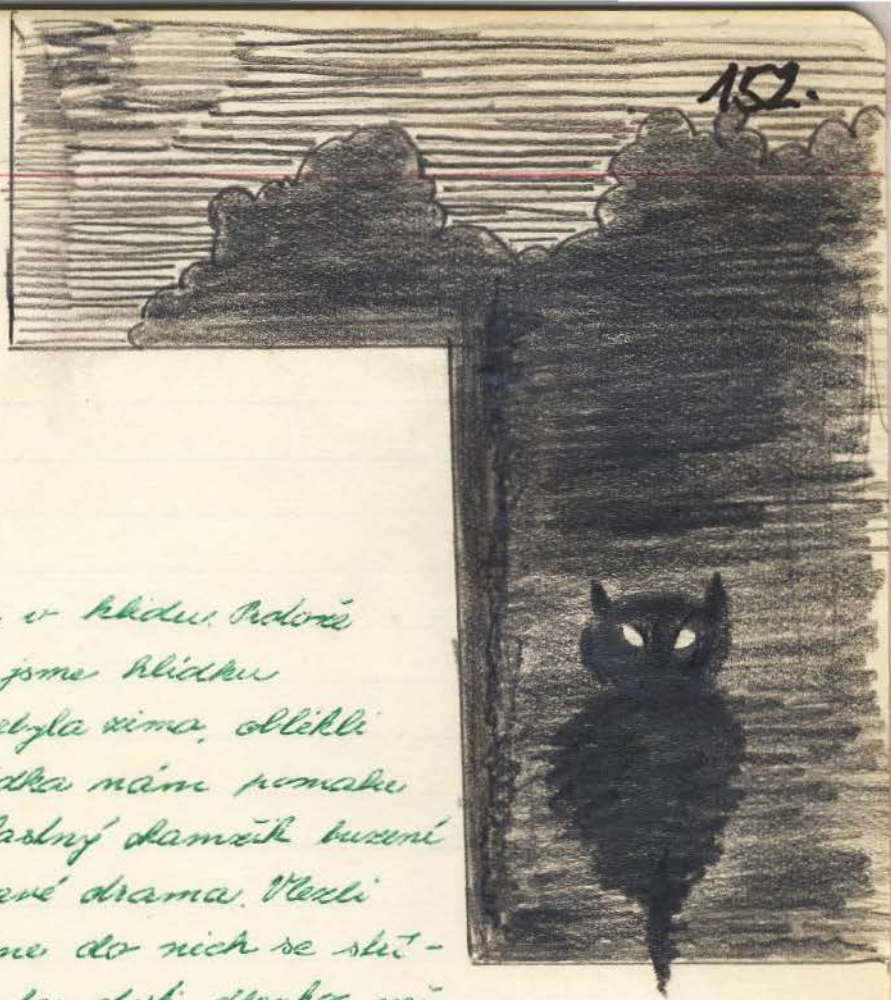 152.
v klidu. Protože
jsme hlídku
ebyla zima, oblékli
ídka nám pomalu
astný okamžik buzení
avé drama. Vlezli
me do nich se stič-